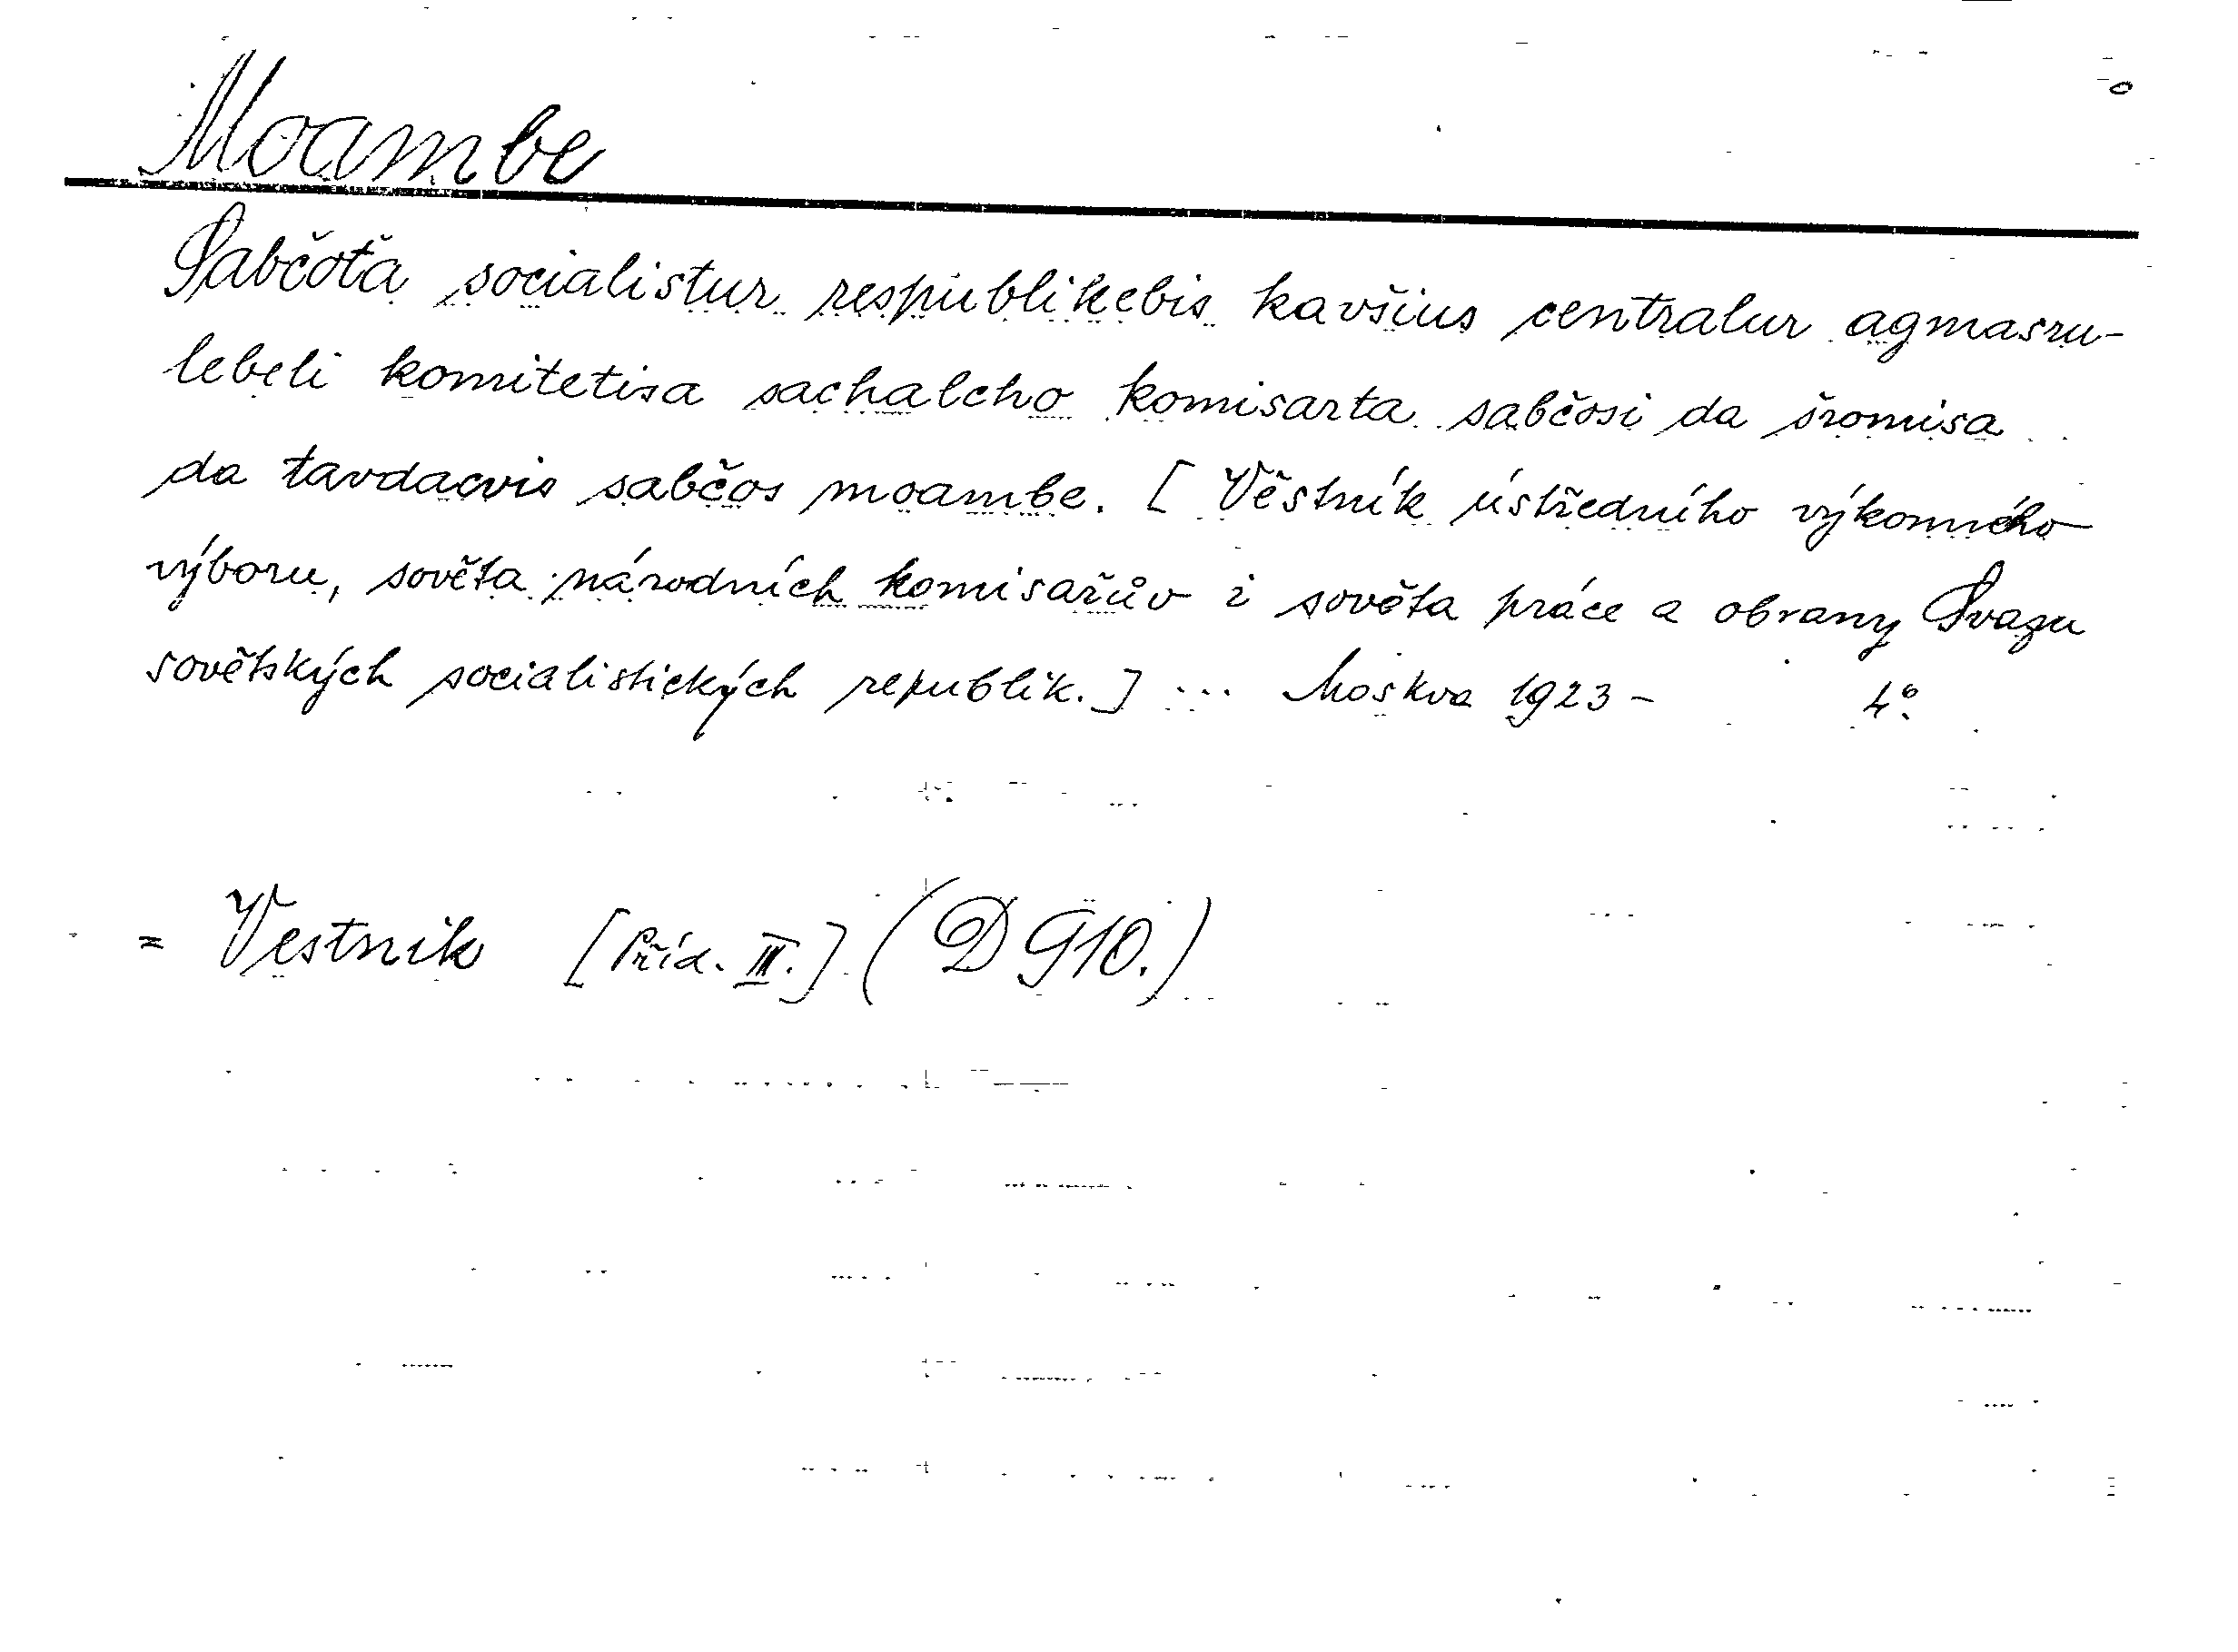 Moambe
Sabčoťa socialistur respublikebis kavšius centralur agmasru-
lebeli komitetisa sachalcho komisarta sabčosi da šromisa
da tavdacvis sabčos moambe. [Věstník ústředního výkonného
výboru, sověta národních komisařův i sověta práce a obrany Svazu
sovětských socialistických republik.] ... Moskva 1923 - 4°.
= Vestnik [Příd. III.] (D 910.)